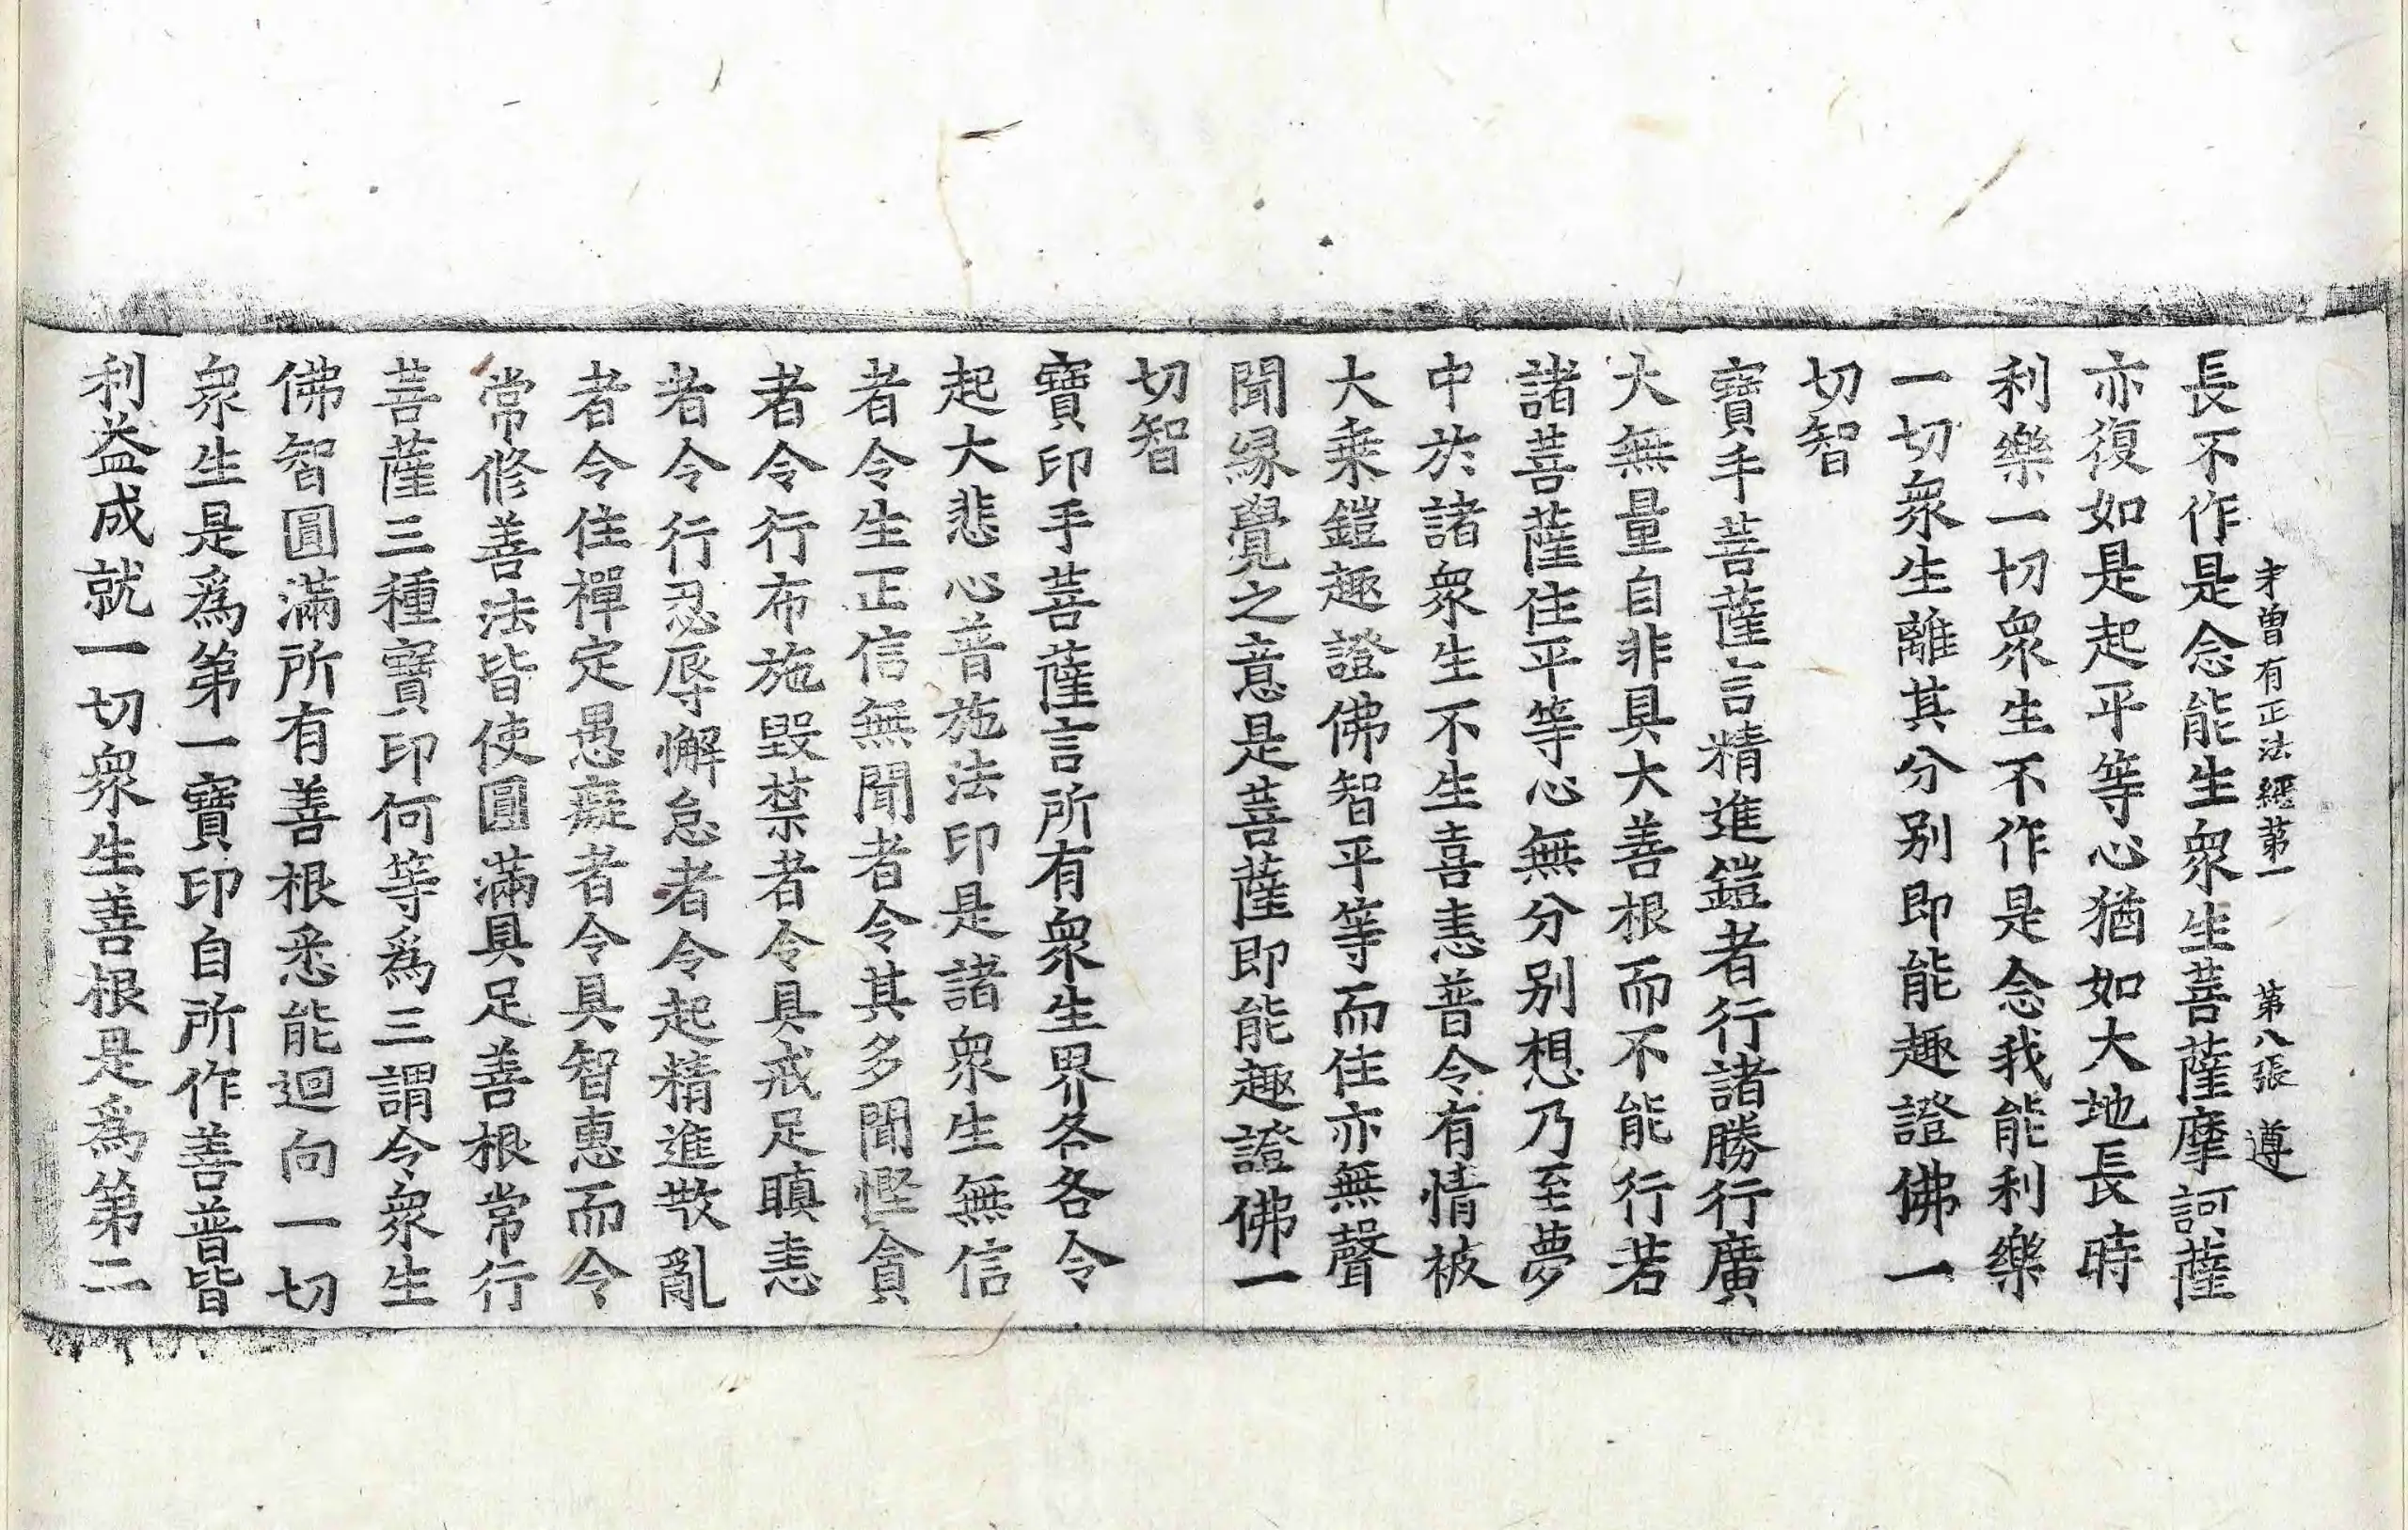 未曽有正法經第一　第八張　遵
長不作是念能生衆生菩薩摩訶薩
亦復如是起平等心猶如大地長時
利樂一切衆生不作是念我能利樂
一切衆生離其分别即能趣證佛一
切智
寶手菩薩言精進鎧者行諸勝行廣
大無量自非具大善根而不能行若
諸菩薩住平等心無分别想乃至夢
中於諸衆生不生喜恚普令有情被
大乗鎧趣證佛智平等而住亦無聲
聞緣覺之意是菩薩即能趣證佛一
切智
寶印手菩薩言所有衆生界各各令
起大悲心普施法印是諸衆生無信
者令生正信無聞者令其多聞慳貪
者令行布施毀禁者令具戒足瞋恚
者令行忍辱懈怠者令起精進散亂
者令住禪定愚癡者令具智惠而令
常修善法皆使圓滿具足善根常行
菩薩三種寶印何等爲三謂令衆生
佛智圓滿所有善根悉能迴向一切
衆生是爲第一寶印自所作善普皆
利益成就一切衆生善根是爲第二